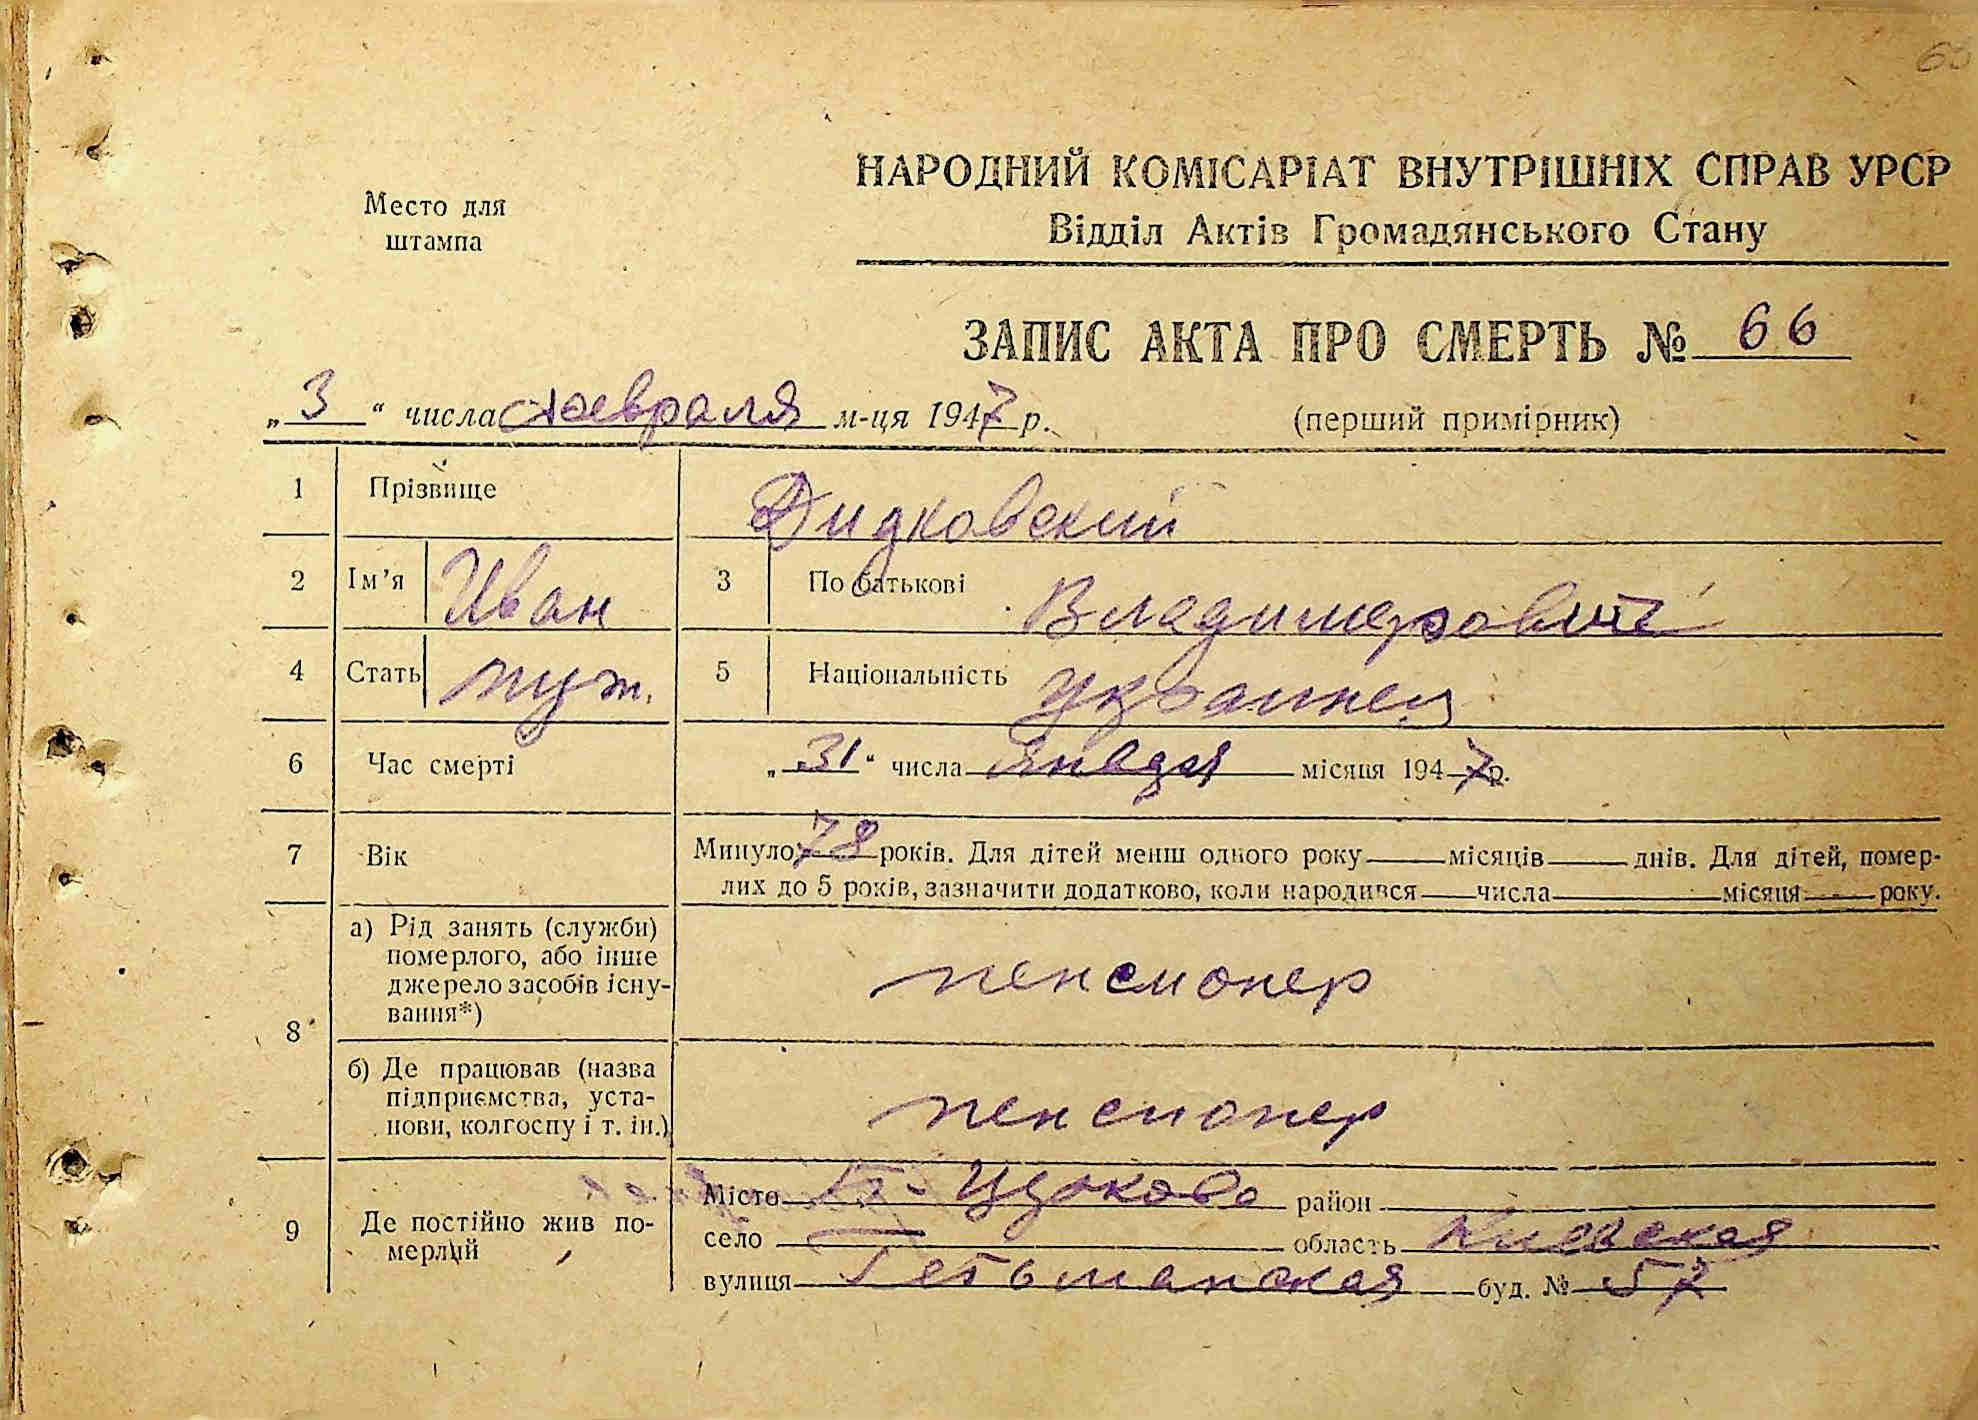 63
Место для
штампа
НАРОДНИЙ КОМІСАРІАТ ВНУТРІШНІХ СПРАВ УРСР
Відділ Актів Громадянського Стану
ЗАПИС АКТА ПРО СМЕРТЬ № 66
„3“ числа февраля м-ця 1947 р.
(перший примірник)
1 Прізвище Дидковский
2 Ім’я Иван 3 По батькові Владимирович
4 Стать муж. 5 Національність Украинец
6 Час смерті „31“ числа января місяця 1947р.
7 Вік Минуло 78 років. Для дітей менш одного року місяців днів. Для дітей, помер-
лих до 5 років, зазначити додатково, коли народився числа місяця року.
8 а) Рід занять (служби)
померлого, або інше
джерело засобів існу-
вання*) пенсионер
б) Де працював (назва
підприємства, уста-
нови, колгоспу і т. ін.) пенсионер
9 Де постійно жив по-
мерлий
Місто район
село область Киевская
вулиця Гетьманская буд. № 57